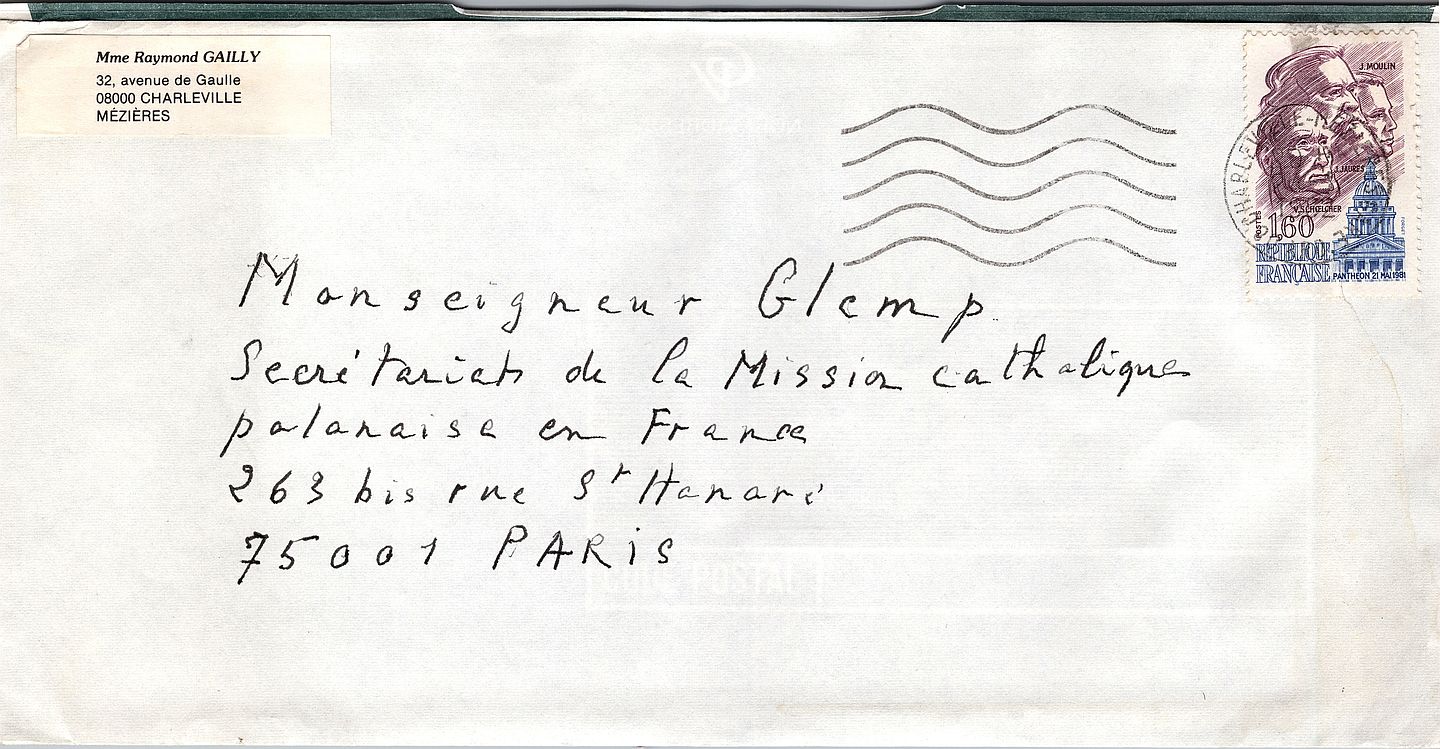 Mme Raymond GAILLY
32, avenue de Gaulle
08000 CHARLEVILLE
MÉZIÈRES
J. MOULIN
J. JAURES
V. SCHŒLCHER
POSTES 1,60
RÉPUBLIQUE
FRANÇAISE
PANTHÉON 21 MAI 1981
Monseigneur Glemp
Secrétariat de la Mission catholique
polonaise en France
263 bis rue St Honoré
75001 PARIS